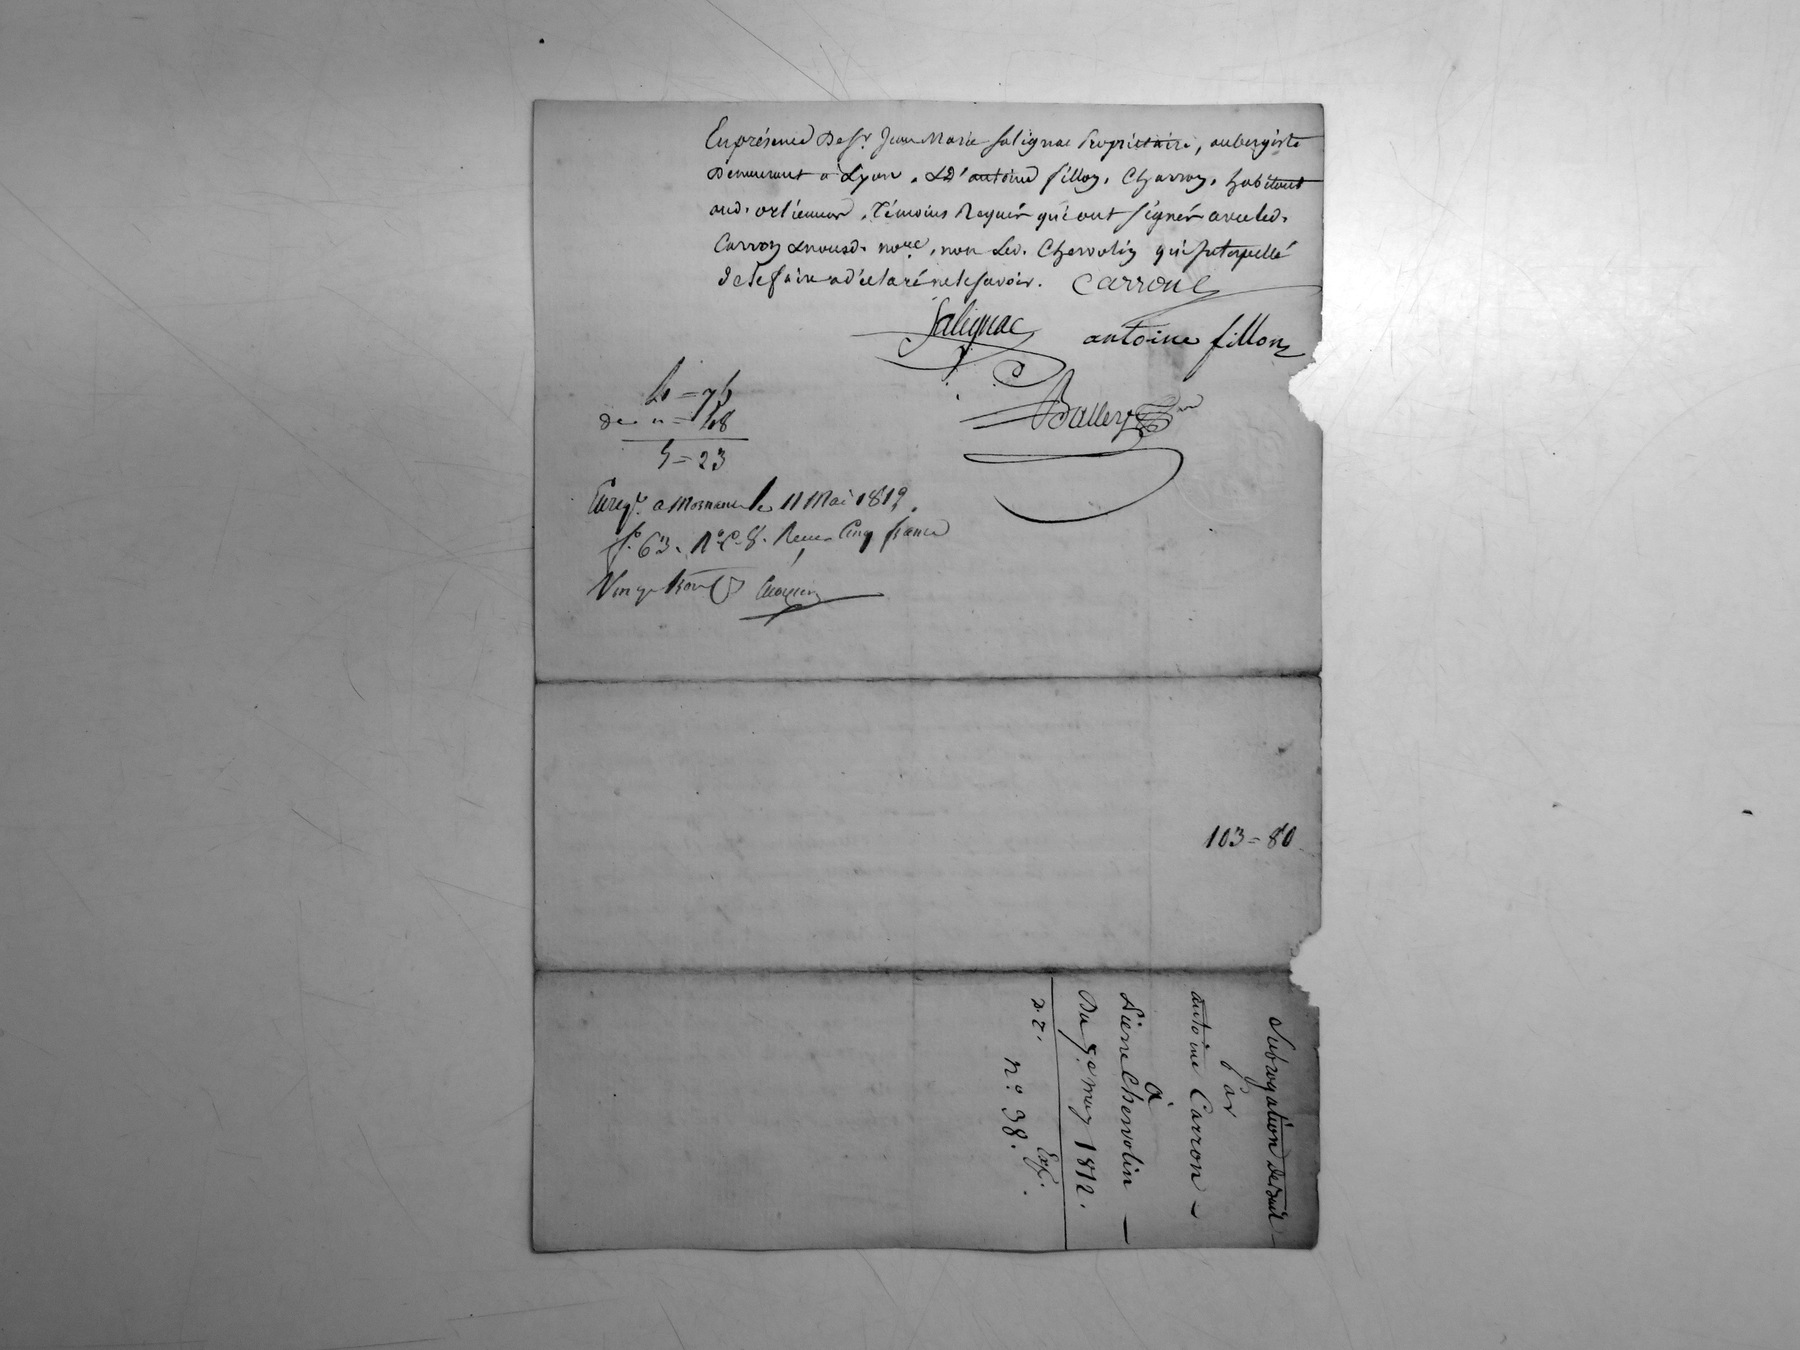 En présence De Sr. Jean Marie Salignac Propriétaire, aubergiste
Demeurant a Lyon, & D'antoine fillon, Charron, habitant
aud. orliennas, Témoins Requis qui ont signés avec led.
Carron & nousd. nore, non Led. Chervolin qui interpellé
de le faire a déclaré ne le savoir. Carron
Salignac antoine fillon
Ballery
4 = 75
de " = 48
5 = 23
Enregt. a Mornant le 11 Mai 1812.
fo. 63. Ro. Co. 8. Recu Cinq francs
Vingt trois
103 = 80
Subrogation de Bail
par
antoine Carron
a
Pierre Chervolin
Du 9 may 1812.
Exp.
no. 38.